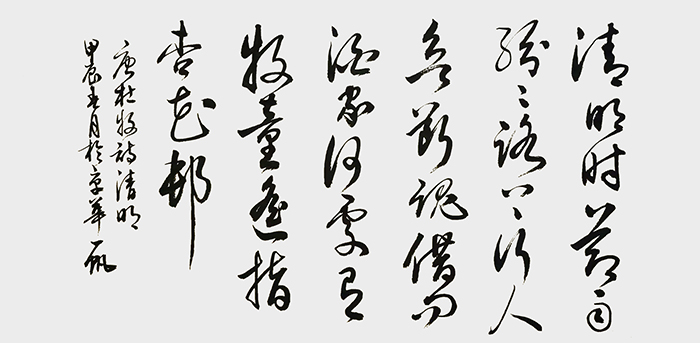 清明时节雨
纷纷路上行人
欲断魂借问
酒家何处有
牧童遥指
杏花邨
唐杜牧诗清明
甲辰春月於京華一帆